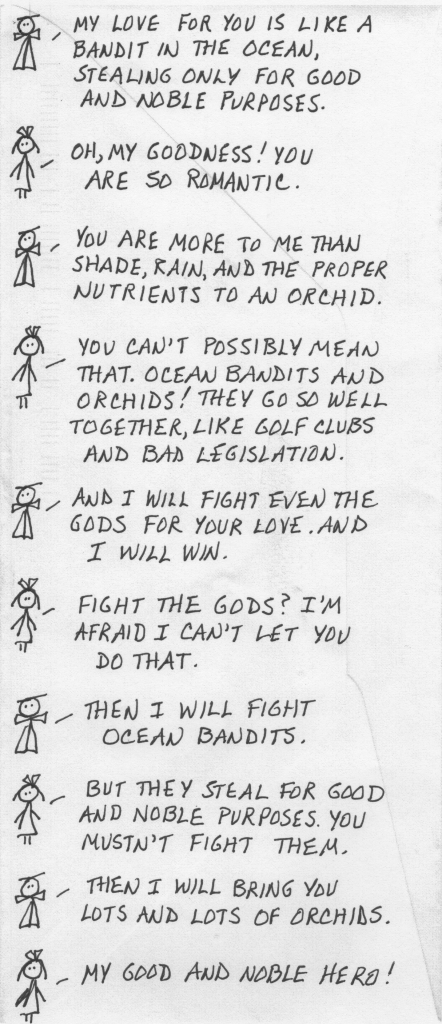 MY LOVE FOR YOU IS LIKE A
BANDIT IN THE OCEAN,
STEALING ONLY FOR GOOD
AND NOBLE PURPOSES.
OH, MY GOODNESS! YOU
ARE SO ROMANTIC.
YOU ARE MORE TO ME THAN
SHADE, RAIN, AND THE PROPER
NUTRIENTS TO AN ORCHID.
YOU CAN'T POSSIBLY MEAN
THAT. OCEAN BANDITS AND
ORCHIDS! THEY GO SO WELL
TOGETHER, LIKE GOLF CLUBS
AND BAD LEGISLATION.
AND I WILL FIGHT EVEN THE
GODS FOR YOUR LOVE. AND
I WILL WIN.
FIGHT THE GODS? I'M
AFRAID I CAN'T LET YOU
DO THAT.
THEN I WILL FIGHT
OCEAN BANDITS.
BUT THEY STEAL FOR GOOD
AND NOBLE PURPOSES. YOU
MUSTN'T FIGHT THEM.
THEN I WILL BRING YOU
LOTS AND LOTS OF ORCHIDS.
MY GOOD AND NOBLE HERO!